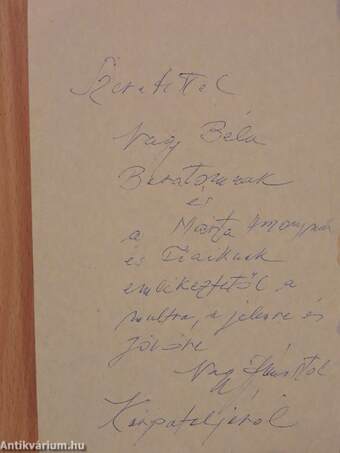 Szeretettel
Nagy Béla
Barátomnak
és
a Márta
és Fiaiknak
emlékeztetőűl a
multra, a jelenre és
jövőre
Nagy
Kárpátaljáról
Antikvárium.hu